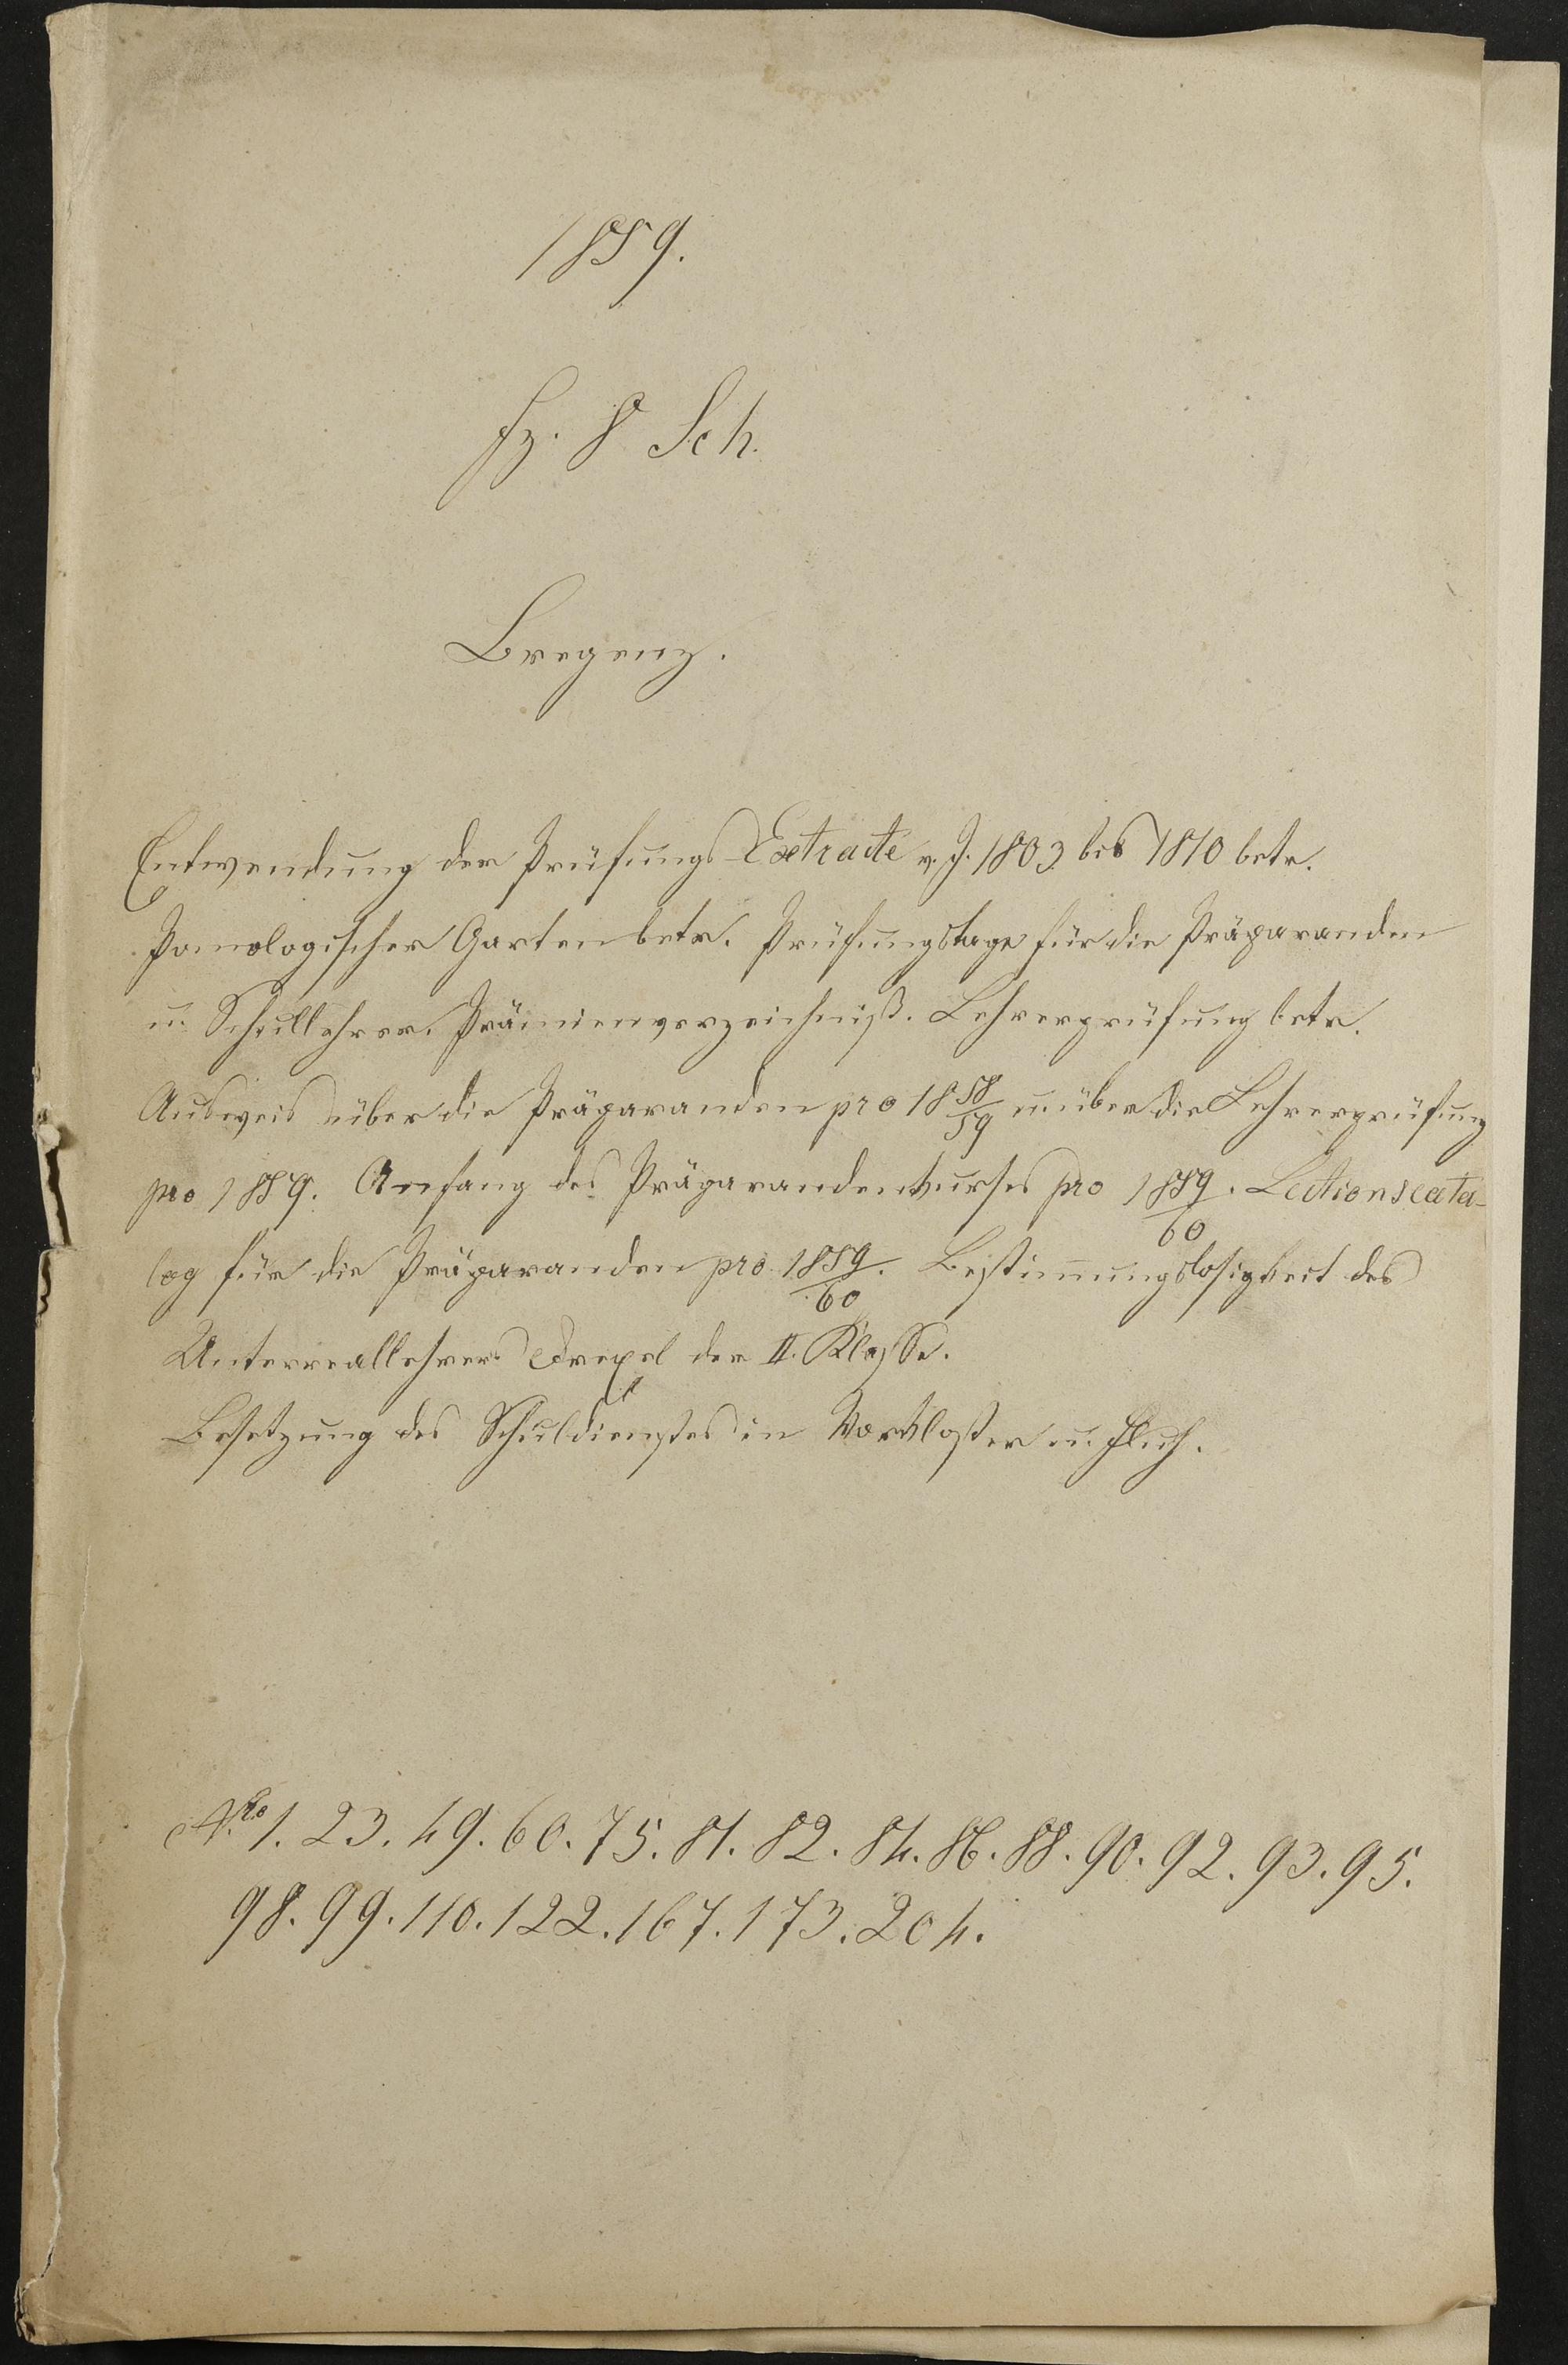 1859.
Fz. 8 Sch.
Bregenz.
Entwendung der Prüfungs-Extracte v. J. 1803 bis 1810 betr.
Pomologischer Garten betr. Prüfungstage für die Präparanden
u. Schullehrer. Prämienverzeichniß. Lehrerprüfung betr.
Ausweis über die Präparanden pro 1858/59 u. über die Lehrerprüfung
pro 1859. Anfang des Präparandenkurses pro 1859/60. Lectionscata-
log für die Präparanden pro 1859/60. Bestimmungslosigkeit des
Unterreallehrers Drexel der II. Klasse.
Besetzung des Schuldienstes in Vorkloster u. Fluh.
Nro 1. 23. 49. 60. 75. 81. 82. 84. 86. 88. 90. 92. 93. 95.
98. 99. 110. 122. 167. 173. 204.